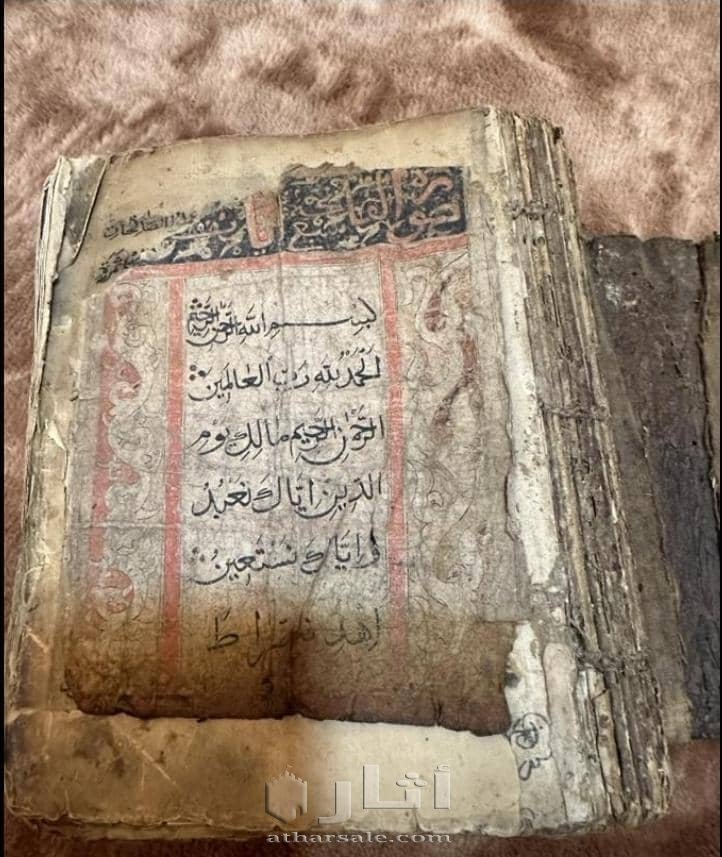 سورة الفاتحة سبع آيات
بسم الله الرحمن الرحيم
الحمد لله رب العالمين
الرحمن الرحيم مالك يوم
الدين اياك نعبد
واياك نستعين
اهد
آثار
atharsale.com